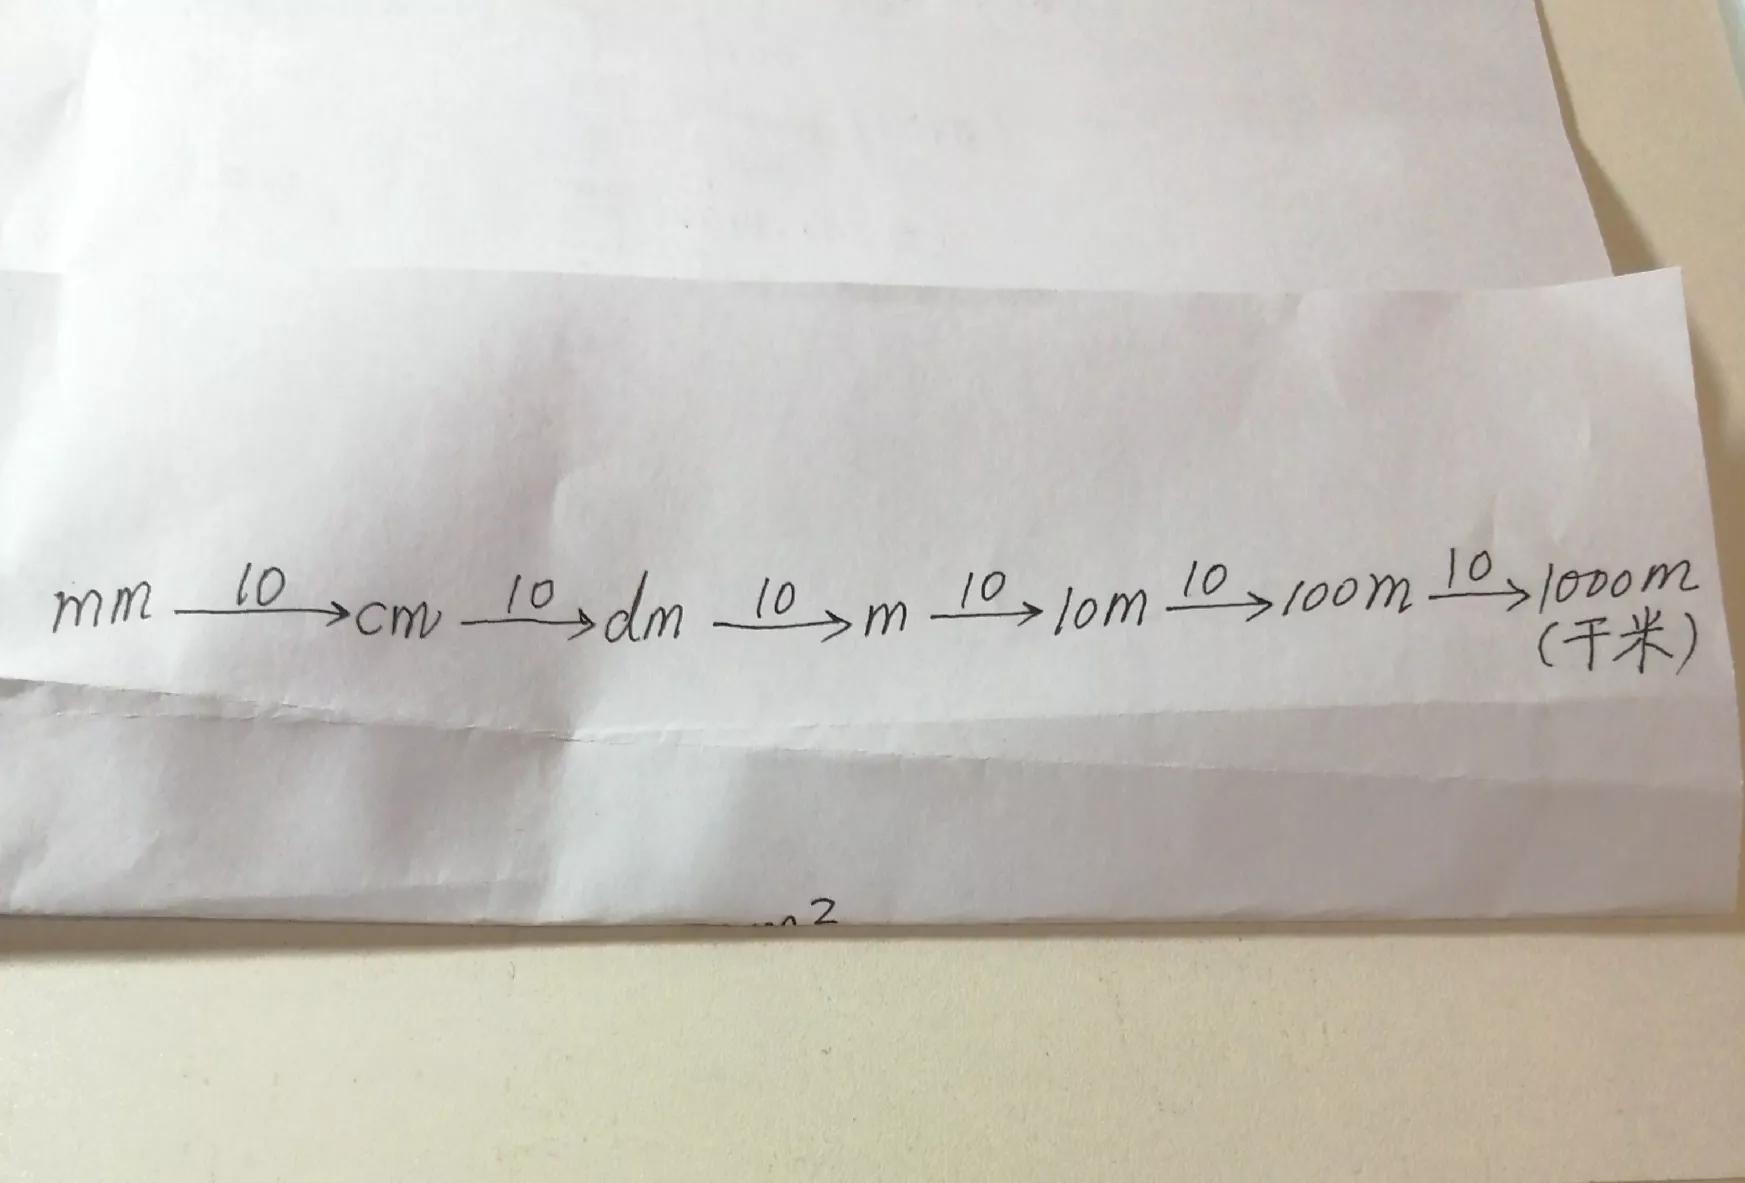 mm 10→ cm 10→ dm 10→ m 10→ 10m 10→ 100m 10→ 1000m
(千米)